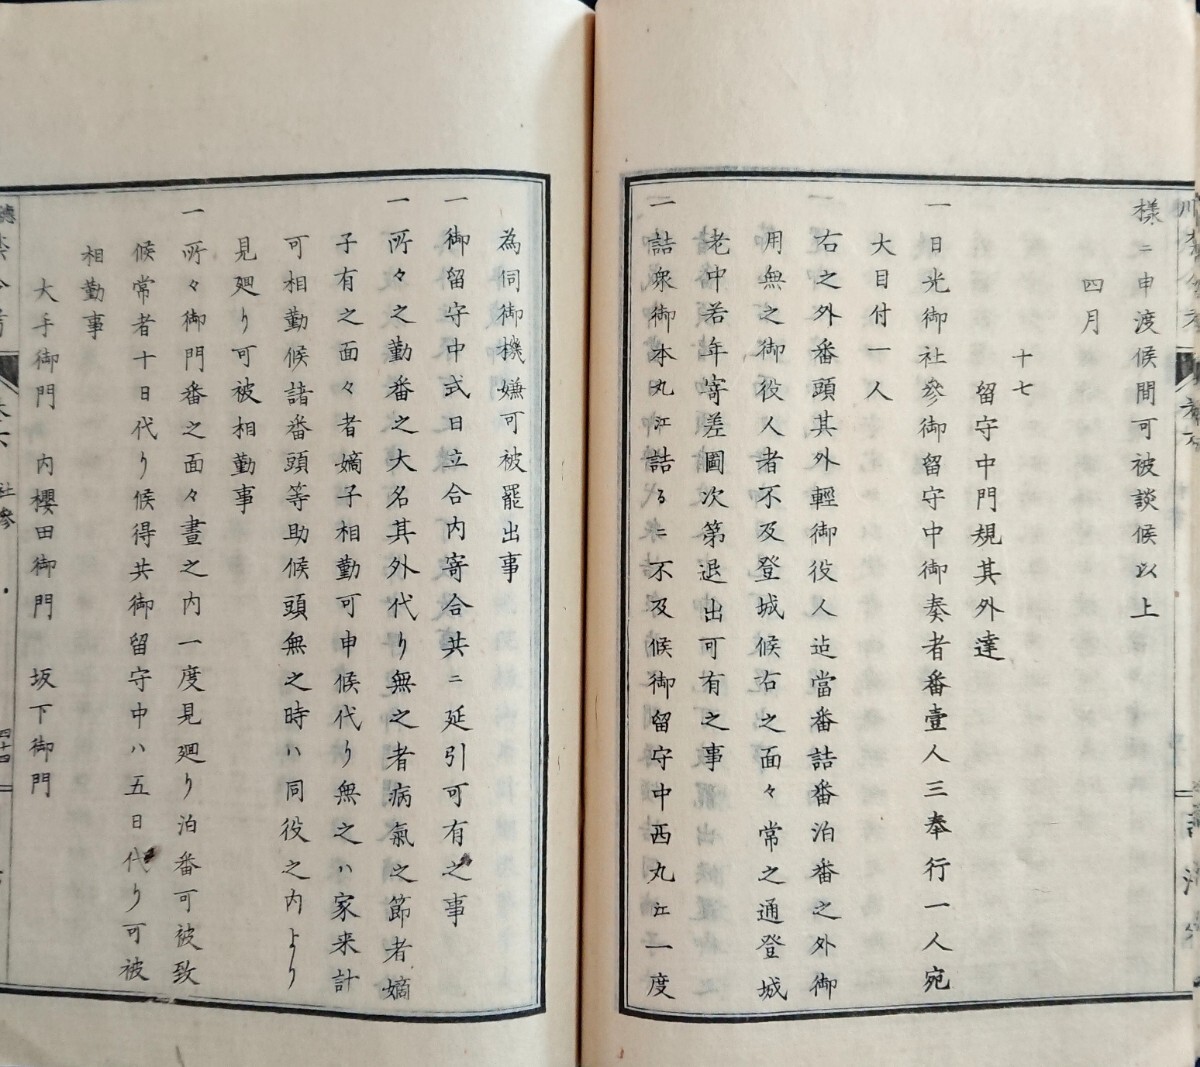 様ニ申渡候間可被談候以上
四月
十七
留守中門規其外達
一日光御社參御留守中御奏者番壹人三奉行一人宛
大目付一人
一右之外番頭其外輕御役人迠當番詰番泊番之外御
用無之御役人者不及登城候右之面々常之通登城
老中若年寄差圖次第退出可有之事
一詰衆御本丸江詰るニ不及候御留守中西丸江一度
為伺御機嫌可被罷出事
一御留守中式日立合内寄合共ニ延引可有之事
一所々之勤番之大名其外代り無之者病氣之節者嫡
子有之面々者嫡子相勤可申候代り無之ハ家来計
可相勤候諸番頭等助候頭無之時ハ同役之内より
見廻り可被相勤事
一所々御門番之面々晝之内一度見廻り泊番可被致
候常者十日代り候得共御留守中ハ五日代り可被
相勤事
大手御門 内櫻田御門 坂下御門
社參
四十四